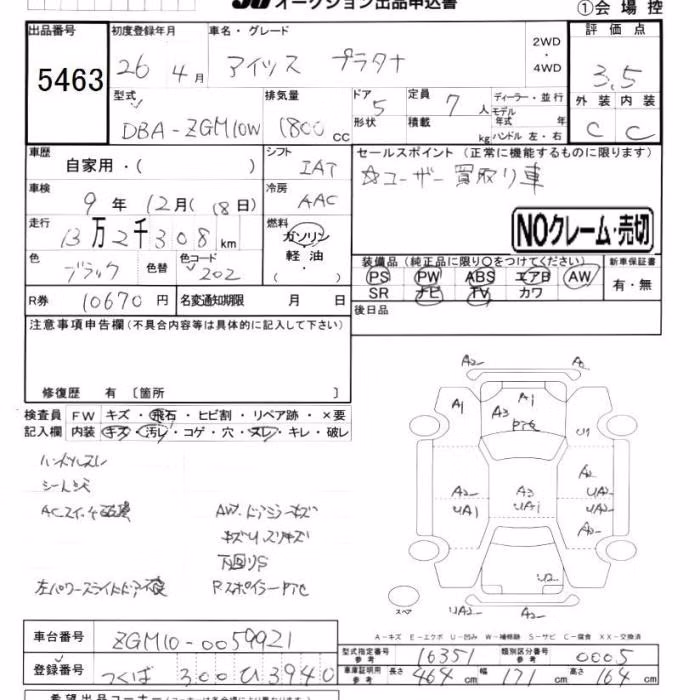 オークション出品申込書
①会場控
出品番号
5463
初度登録年月
26年4月
車名・グレード
アイシス プラタナ
2WD
・
4WD
評価点
3.5
型式
DBA-ZGM10W
排気量
1800cc
ドア
5
形状
定員 7人
積載 kg
ディーラー・並行
モデル年式 年
ハンドル 左・右
外装 内装
C C
車歴
自家用・( )
シフト
IAT
車検
9年12月(18日)
冷房
AAC
走行
13万2千308km
燃料
ガソリン
軽油
・
( )
色
ブラック
色替
色コード
202
R券 10670円
名変通知期限 月 日
セールスポイント(正常に機能するものに限ります)
☆ユーザー買取り車
NOクレーム・売切
装備品(純正品に限り○をつけてください)
PS PW ABS エアB AW
SR ナビ TV カワ
新車保証書
有・無
後日品
注意事項申告欄(不具合内容等は具体的に記入して下さい)
修復歴 有〔箇所 〕
検査員記入欄
FW キズ・飛石・ヒビ割・リペア跡・×要
内装 キズ・汚レ・コゲ・穴・スレ・キレ・破レ
ハンドルスレ
AW.ドアミラーキズ
下回りS
左パワースライドドア不良
RスポイラーPTC
A2 A2
A1 A1
A3
PTC
U1
A2 A3 A2
UA1 UA1 UA2
A2
U2
スペア
UA2 A2
A-キズ E-エクボ U-凹み W-補修跡 S-サビ C-腐食 XX-交換済
車台番号 ZGM10-0059921
登録番号 つくば 300 ひ 3940
型式指定番号 参考 16351
類別区分番号 参考 0005
車庫証明用 参考 長さ 464cm 幅 171cm 高さ 164cm
希望出品コーナー